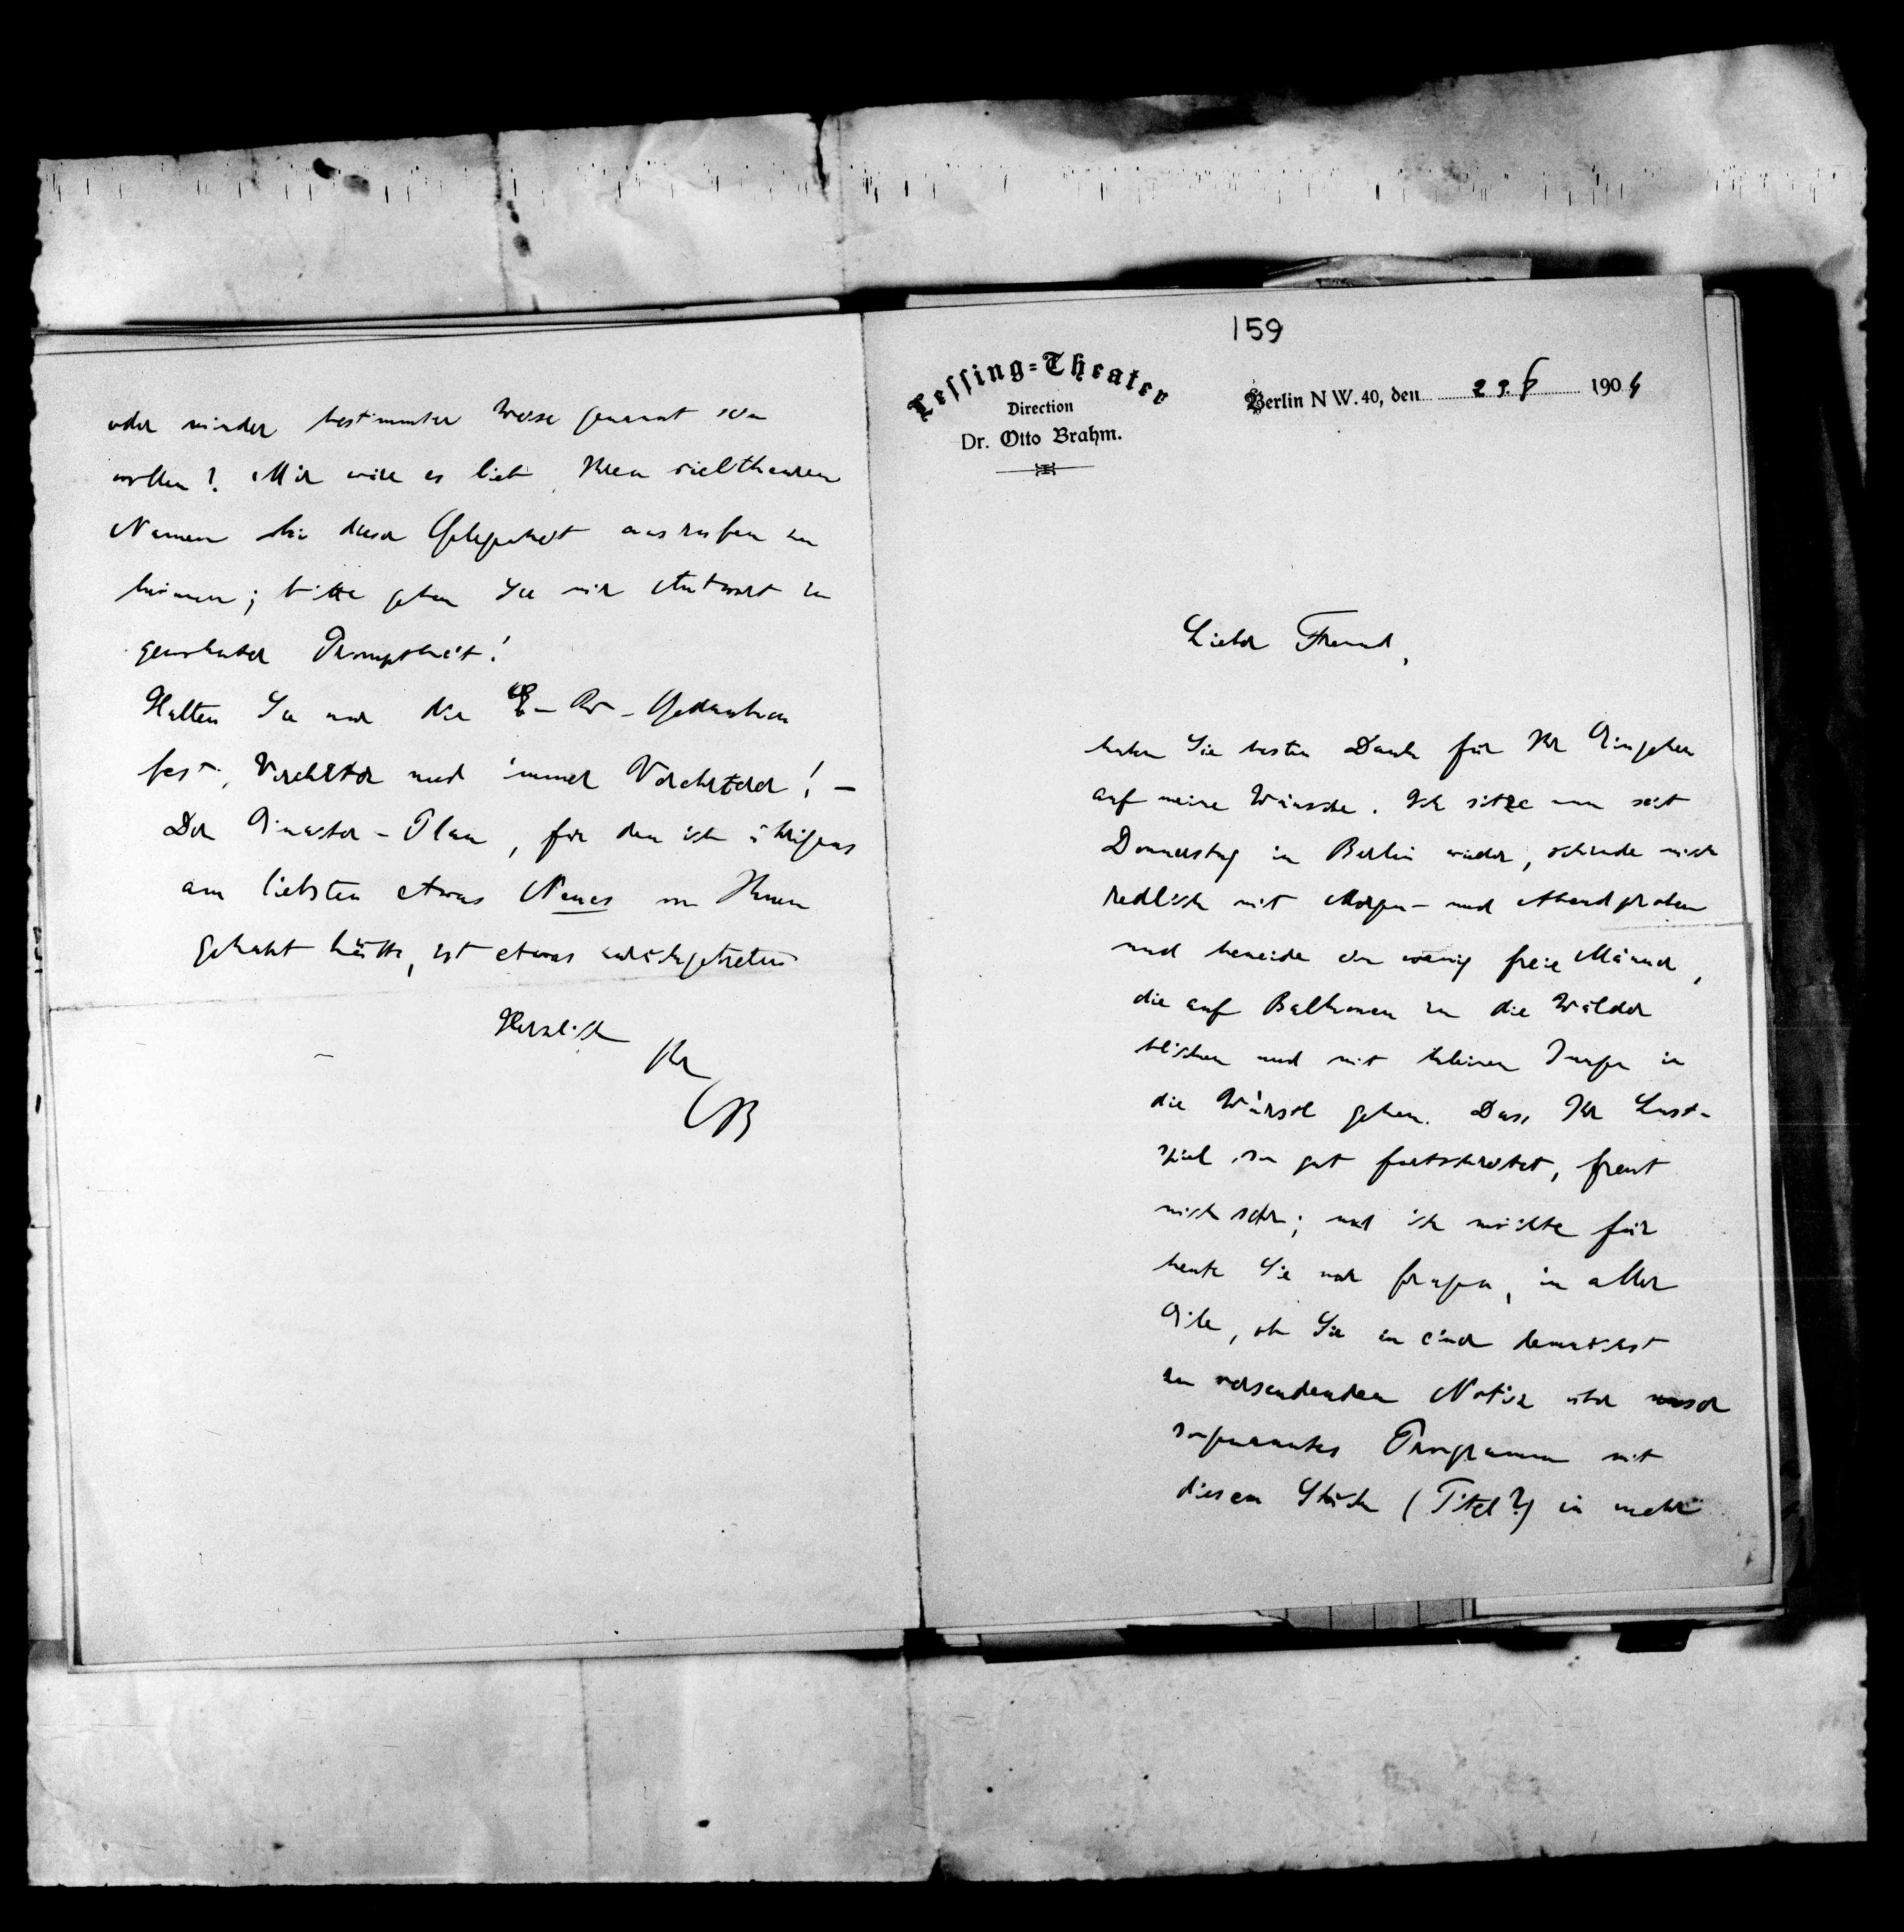 159
Lessing=Theater
Direction
Dr. Otto Brahm.
Berlin NW. 40, den 29. 8 1904
Lieber Freund,
haben Sie besten Dank für Ihr Eingehen
auf meine Wünsche. Ich sitze nun seit
Donnerstag in Berlin wieder, schinde mich
redlich mit Morgen- und Abendproben
und beneide ein wenig freie Männer,
die auf Balkonen in die Wälder
blicken und mit kleinen Jungen in
die Würstl gehen. Dass Ihr Lust-
spiel so gut fortschreitet, freut
mich sehr; und ich möchte für
heute Sie nur fragen, in aller
Eile, ob Sie in einer demnächst
zu versendenden Notiz über unser
sogenanntes Programm mit
diesem Stück (Titel?) in mehr
oder minder bestimmter Weise genannt sein
wollen? Mir wäre es lieb, Ihren vieltheuren
Namen bei dieser Gelegenheit ausrufen zu
können; bitte geben Sie mir Antwort in
gewohnter Promptheit!
Halten Sie nur die Gedanken
fest, Verehrter und immer Verehrterer! –
Der Einakter-Plan, für den ich übrigens
am liebsten etwas Neues von Ihnen
gehabt hätte, ist etwas zurückgetreten
Herzlich
Ihr
OB